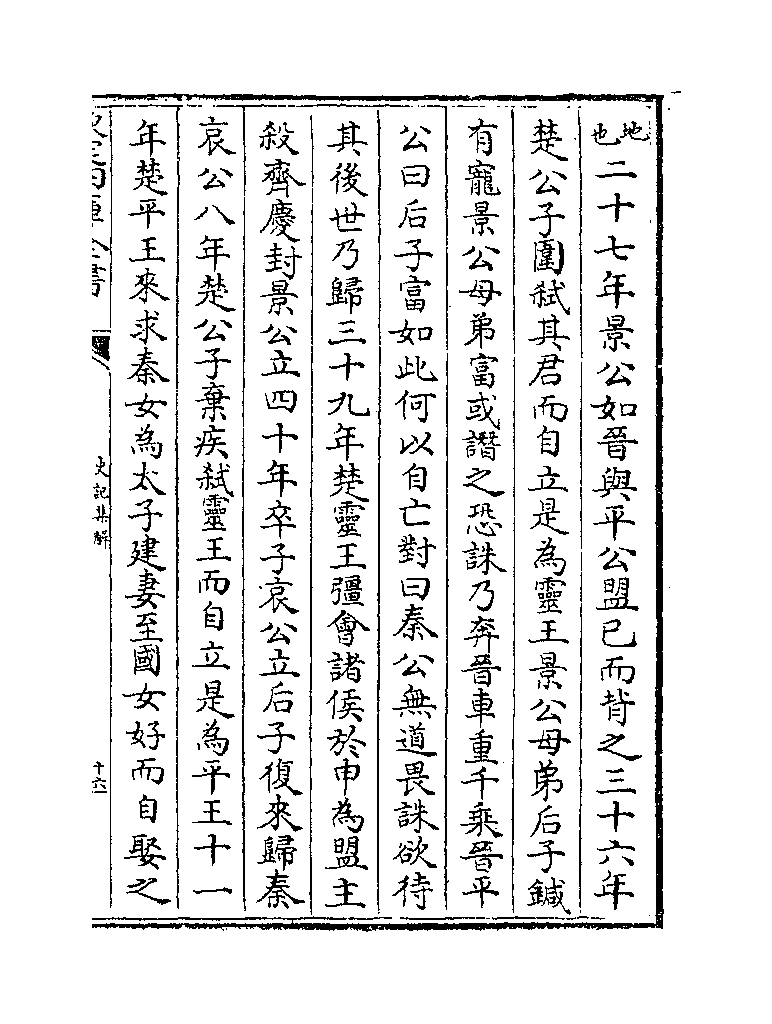 地也二十七年景公如晉與平公盟已而背之三十六年
楚公子圍弑其君而自立是為靈王景公母弟后子鍼
有寵景公母弟富或譖之恐誅乃奔晉車重千乘晉平
公曰后子富如此何以自亡對曰秦公無道畏誅欲待
其後世乃歸三十九年楚靈王彊會諸侯於申為盟主
殺齊慶封景公立四十年卒子哀公立后子復來歸秦
哀公八年楚公子棄疾弑靈王而自立是為平王十一
年楚平王來求秦女為太子建妻至國女好而自娶之
欽定四庫全書
史記集解
十六